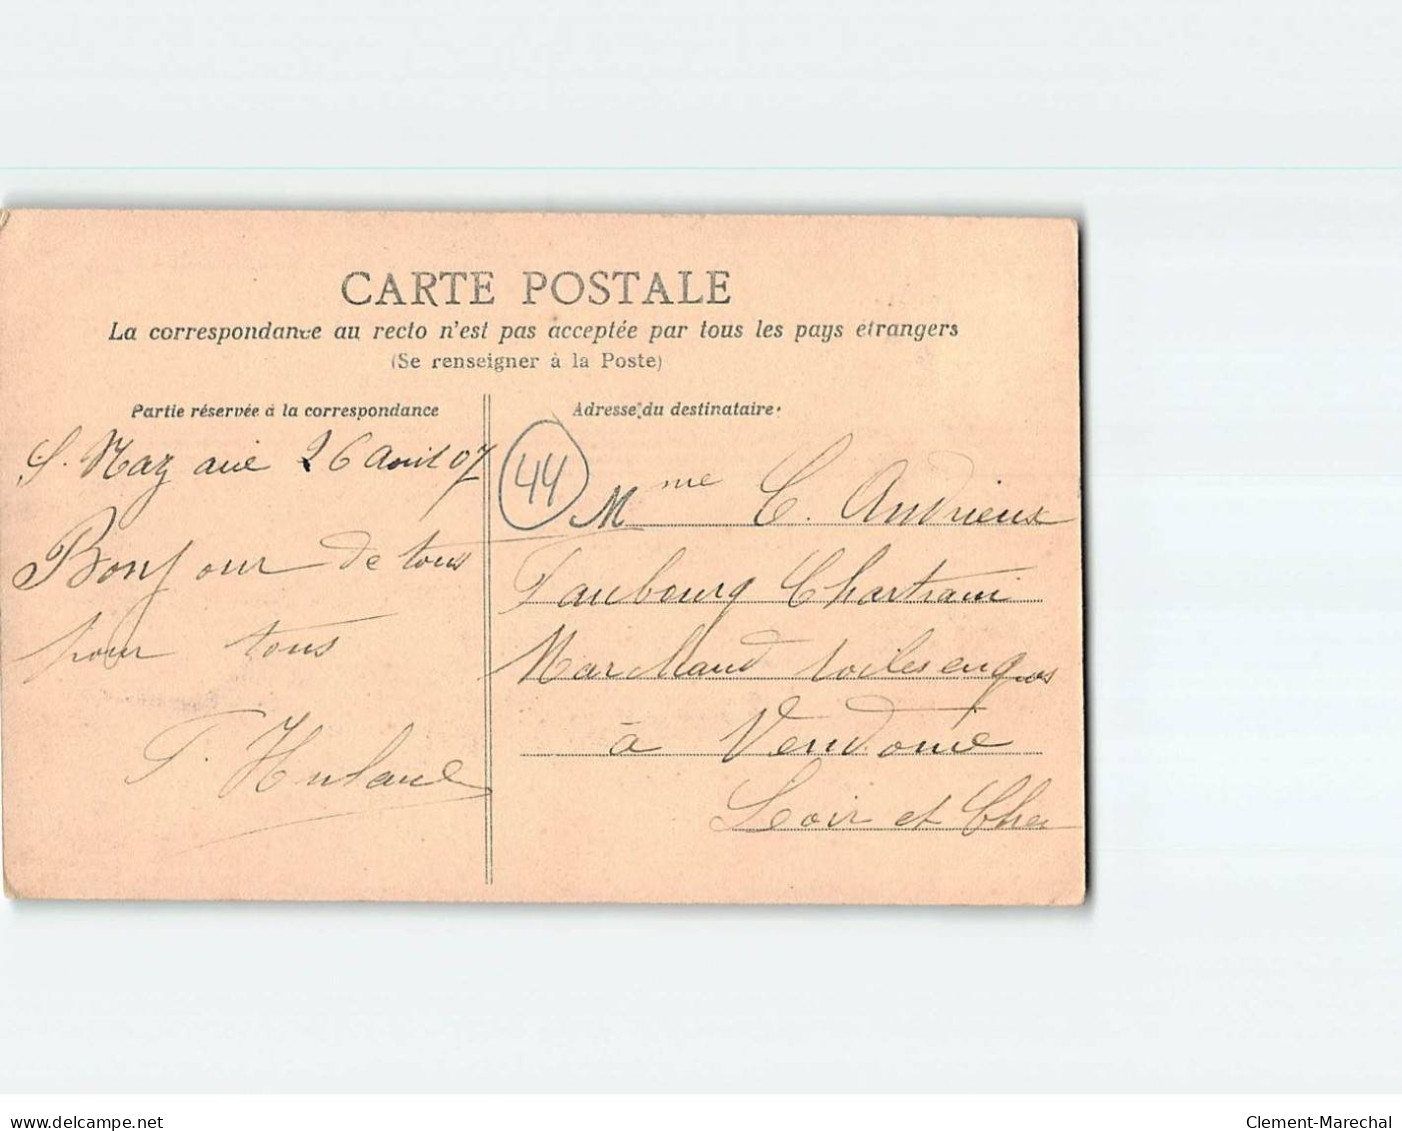 CARTE POSTALE
La correspondance au recto n'est pas acceptée par tous les pays étrangers
(Se renseigner à la Poste)
Partie réservée à la correspondance
S. Nazaire 26 Avril 07
Bonjour de tous
pour tous
Adresse du destinataire
44
Mme C. Andrieux
Faubourg Chartrain
Marchand toiles en gros
à Vendome
Loir et Cher
delcampe.net
Clement-Marechal